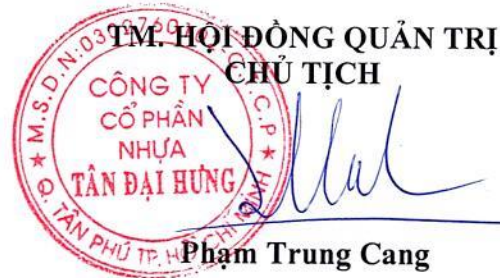 TM. HỘI ĐỒNG QUẢN TRỊ
CHỦ TỊCH
CÔNG TY
CỔ PHẦN
NHỰA
TÂN ĐẠI HƯNG
Q. TÂN PHÚ TP.
Phạm Trung Cang